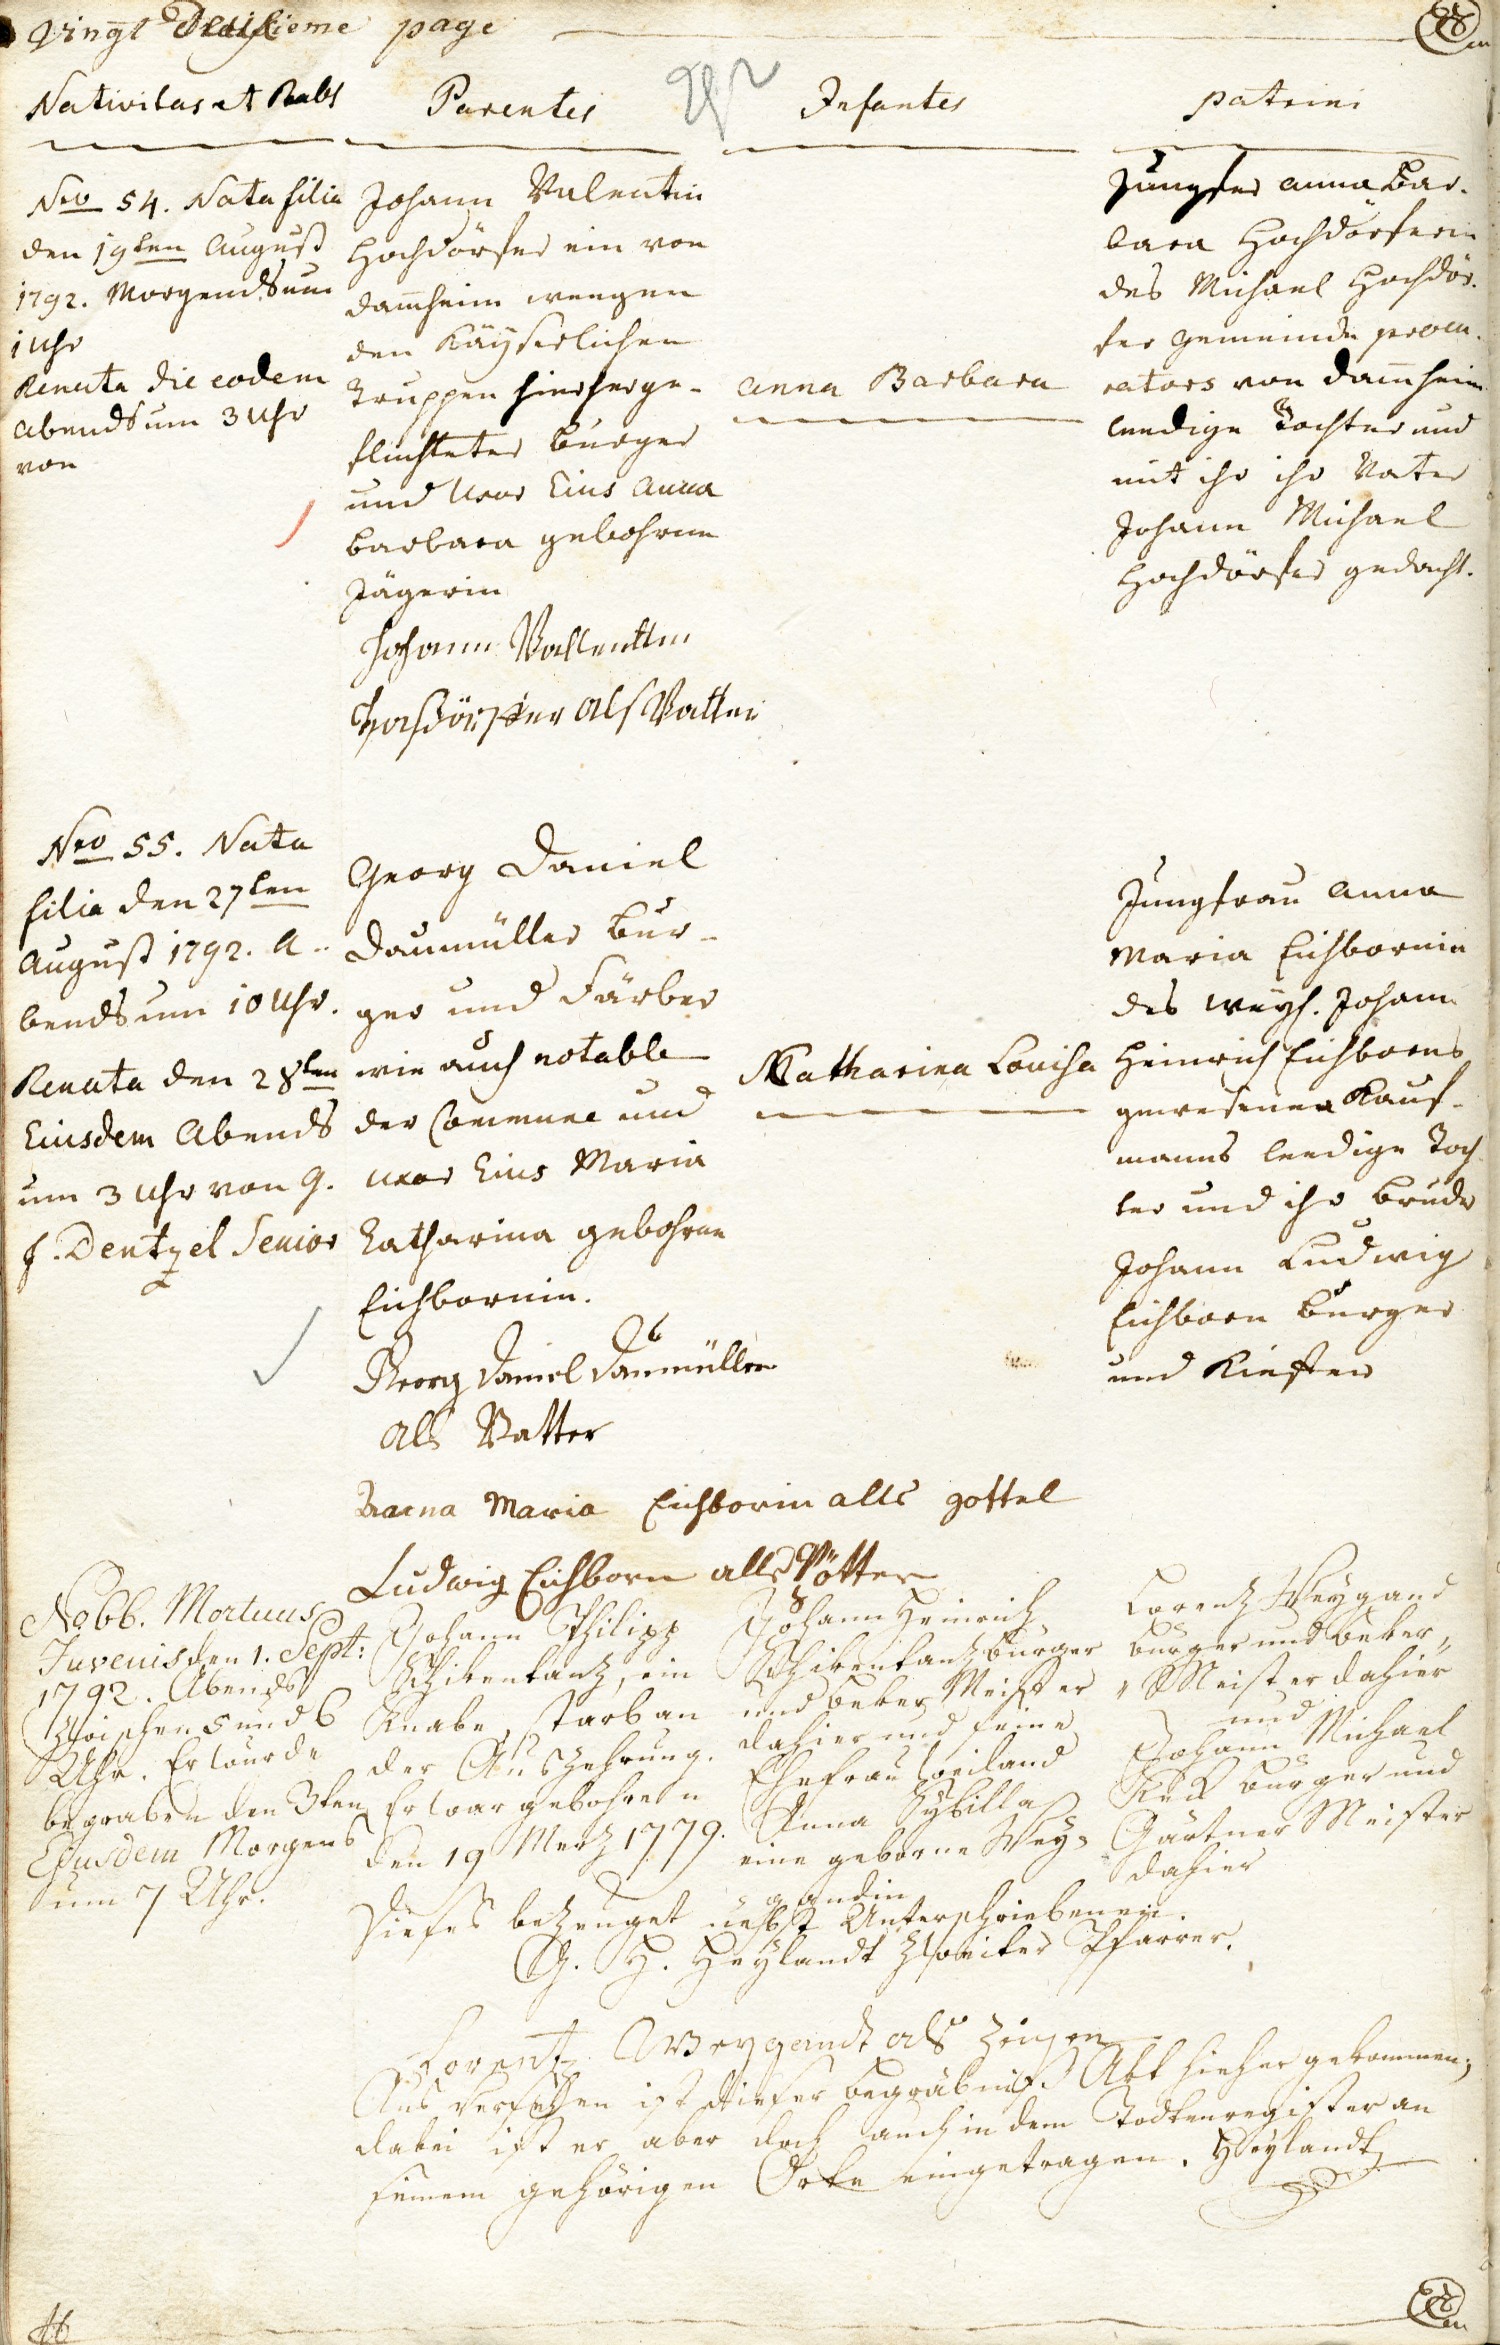 Vingt Troisieme page
Nativitas et Renats
Parentes
Infantes
patrini
Nro 54. Nata filia
den 19ten August
1792. Morgends um
1 Uhr
Renata die eodem
abends um 3 Uhr
von
Johann Valentin
Hochdörfer ein von
dam̄heim weegen
den Käyserlichen
Truppen hierherge-
flüchteter Burger
und Uxor Eius Anna
Barbara gebohrne
Jägerin
Johann Vallenttin
Hochdörffer als Vatter
Anna Barbara
Jungfer Anna Bar-
bara Hochdörferin
des Michael Hochdör-
fer gemeinde procu-
rators von dam̄heim
leedige Tochter und
mit ihr ihr Vater
Johann Michael
Hochdörfer gedacht.
Nro 55. Nata
filia den 27ten
August 1792. A-
bends um 10 Uhr.
Renata den 28ten
Eiusdem Abends
um 3 Uhr von G.
f. Dentzel Senior
Georg Daniel
Daumüller Bur-
ger und Färber
wie auch notable
der Commune und
uxor Eius Maria
Catharina gebohrne
Eichbornin.
Georg Daniel Daumüller
als Vatter
Anna Maria Eichborin alls gottel
Ludwig Eichborn alls Pötter
Katharina Louisa
Jungfrau Anna
Maria Eichbornin
des weyl. Johann
Heinrich Eichborns
gewesenen Kauf-
manns leedige Toch
ter und ihr Bruder
Johann Ludwig
Eichborn Burger
und Kiefer
No 66. Mortuus
Juvenis den 1. Sept:
1792. Abends
zwischen 5 und 6
Uhr. Er wurde
begraben den 3ten
Ejusdem Morgens
um 7 Uhr.
Johann Philipp
Schikentantz, ein
Knabe, starb an
der Auszehrung.
Er war gebohren
den 19 Merz 1779.
Johann Heinrich
Schikentantz burger
und beker Meister
dahier und seine
Ehefrau weiland
Anna Sybilla
eine geborne Wey-
gandin
Lorentz Weygand
burger und beker
Meister dahier
und
Johann Michael
Keck burger und
Gärtner Meister
dahier
Dieses bezeuget nebst Unterschriebenen.
G. H. Heylandt zweiter Pfarrer.
Lorentz Weygandt als Zeugen
Aus Versehen ist dieser begräbniß Akt hieher gekommen;
dabei ist er aber doch auch in dem Todtenregister an
seinem gehörigen Orte eingetragen. Heylandt